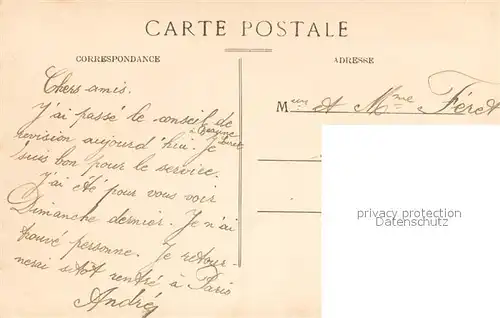 CARTE POSTALE
CORRESPONDANCE
ADRESSE
Chers amis.
J'ai passé le conseil de
revision aujourd'hui. Je
suis bon pour le service.
J'ai été pour vous voir
Dimanche dernier. Je n'ai
trouvé personne. Je retour-
nerai sitôt rentré à Paris
André
Meur et Mme Féret
privacy protection
Datenschutz